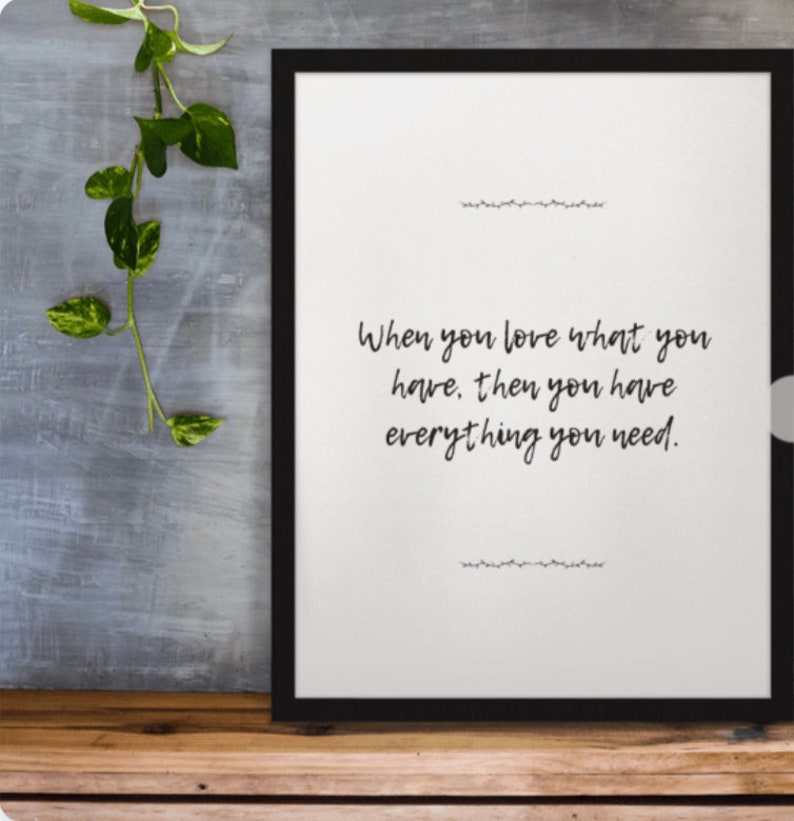 When you love what you
have, then you have
everything you need.